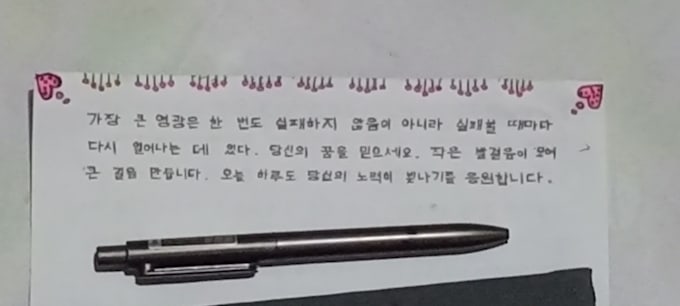 가장 큰 영광은 한 번도 실패하지 않음이 아니라 실패할 때마다
다시 일어나는 데 있다. 당신의 꿈을 믿으세요. 작은 발걸음이 모여
큰 길을 만듭니다. 오늘 하루도 당신의 노력이 빛나기를 응원합니다.